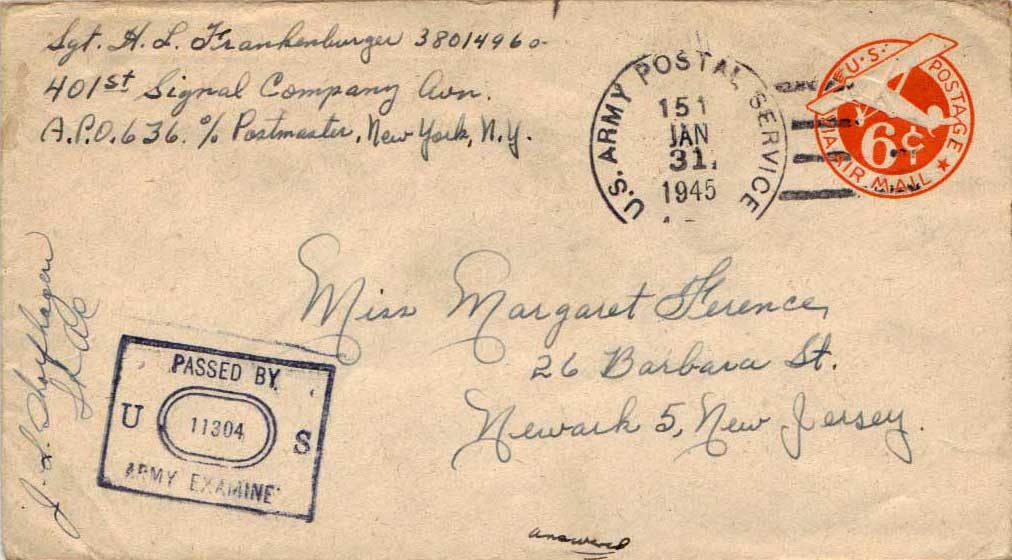 Sgt. H. L. Frankenburger 38014960
401st Signal Company Avn.
A.P.O. 636. % Postmaster, New York, N.Y.
U.S. ARMY POSTAL SERVICE
151
JAN
31
1945
U.S. POSTAGE
VIA AIR MAIL
6¢
Miss Margaret Ference
26 Barbara St.
Newark 5, New Jersey.
J. L.
PASSED BY
U 11304 S
ARMY EXAMINE
answered